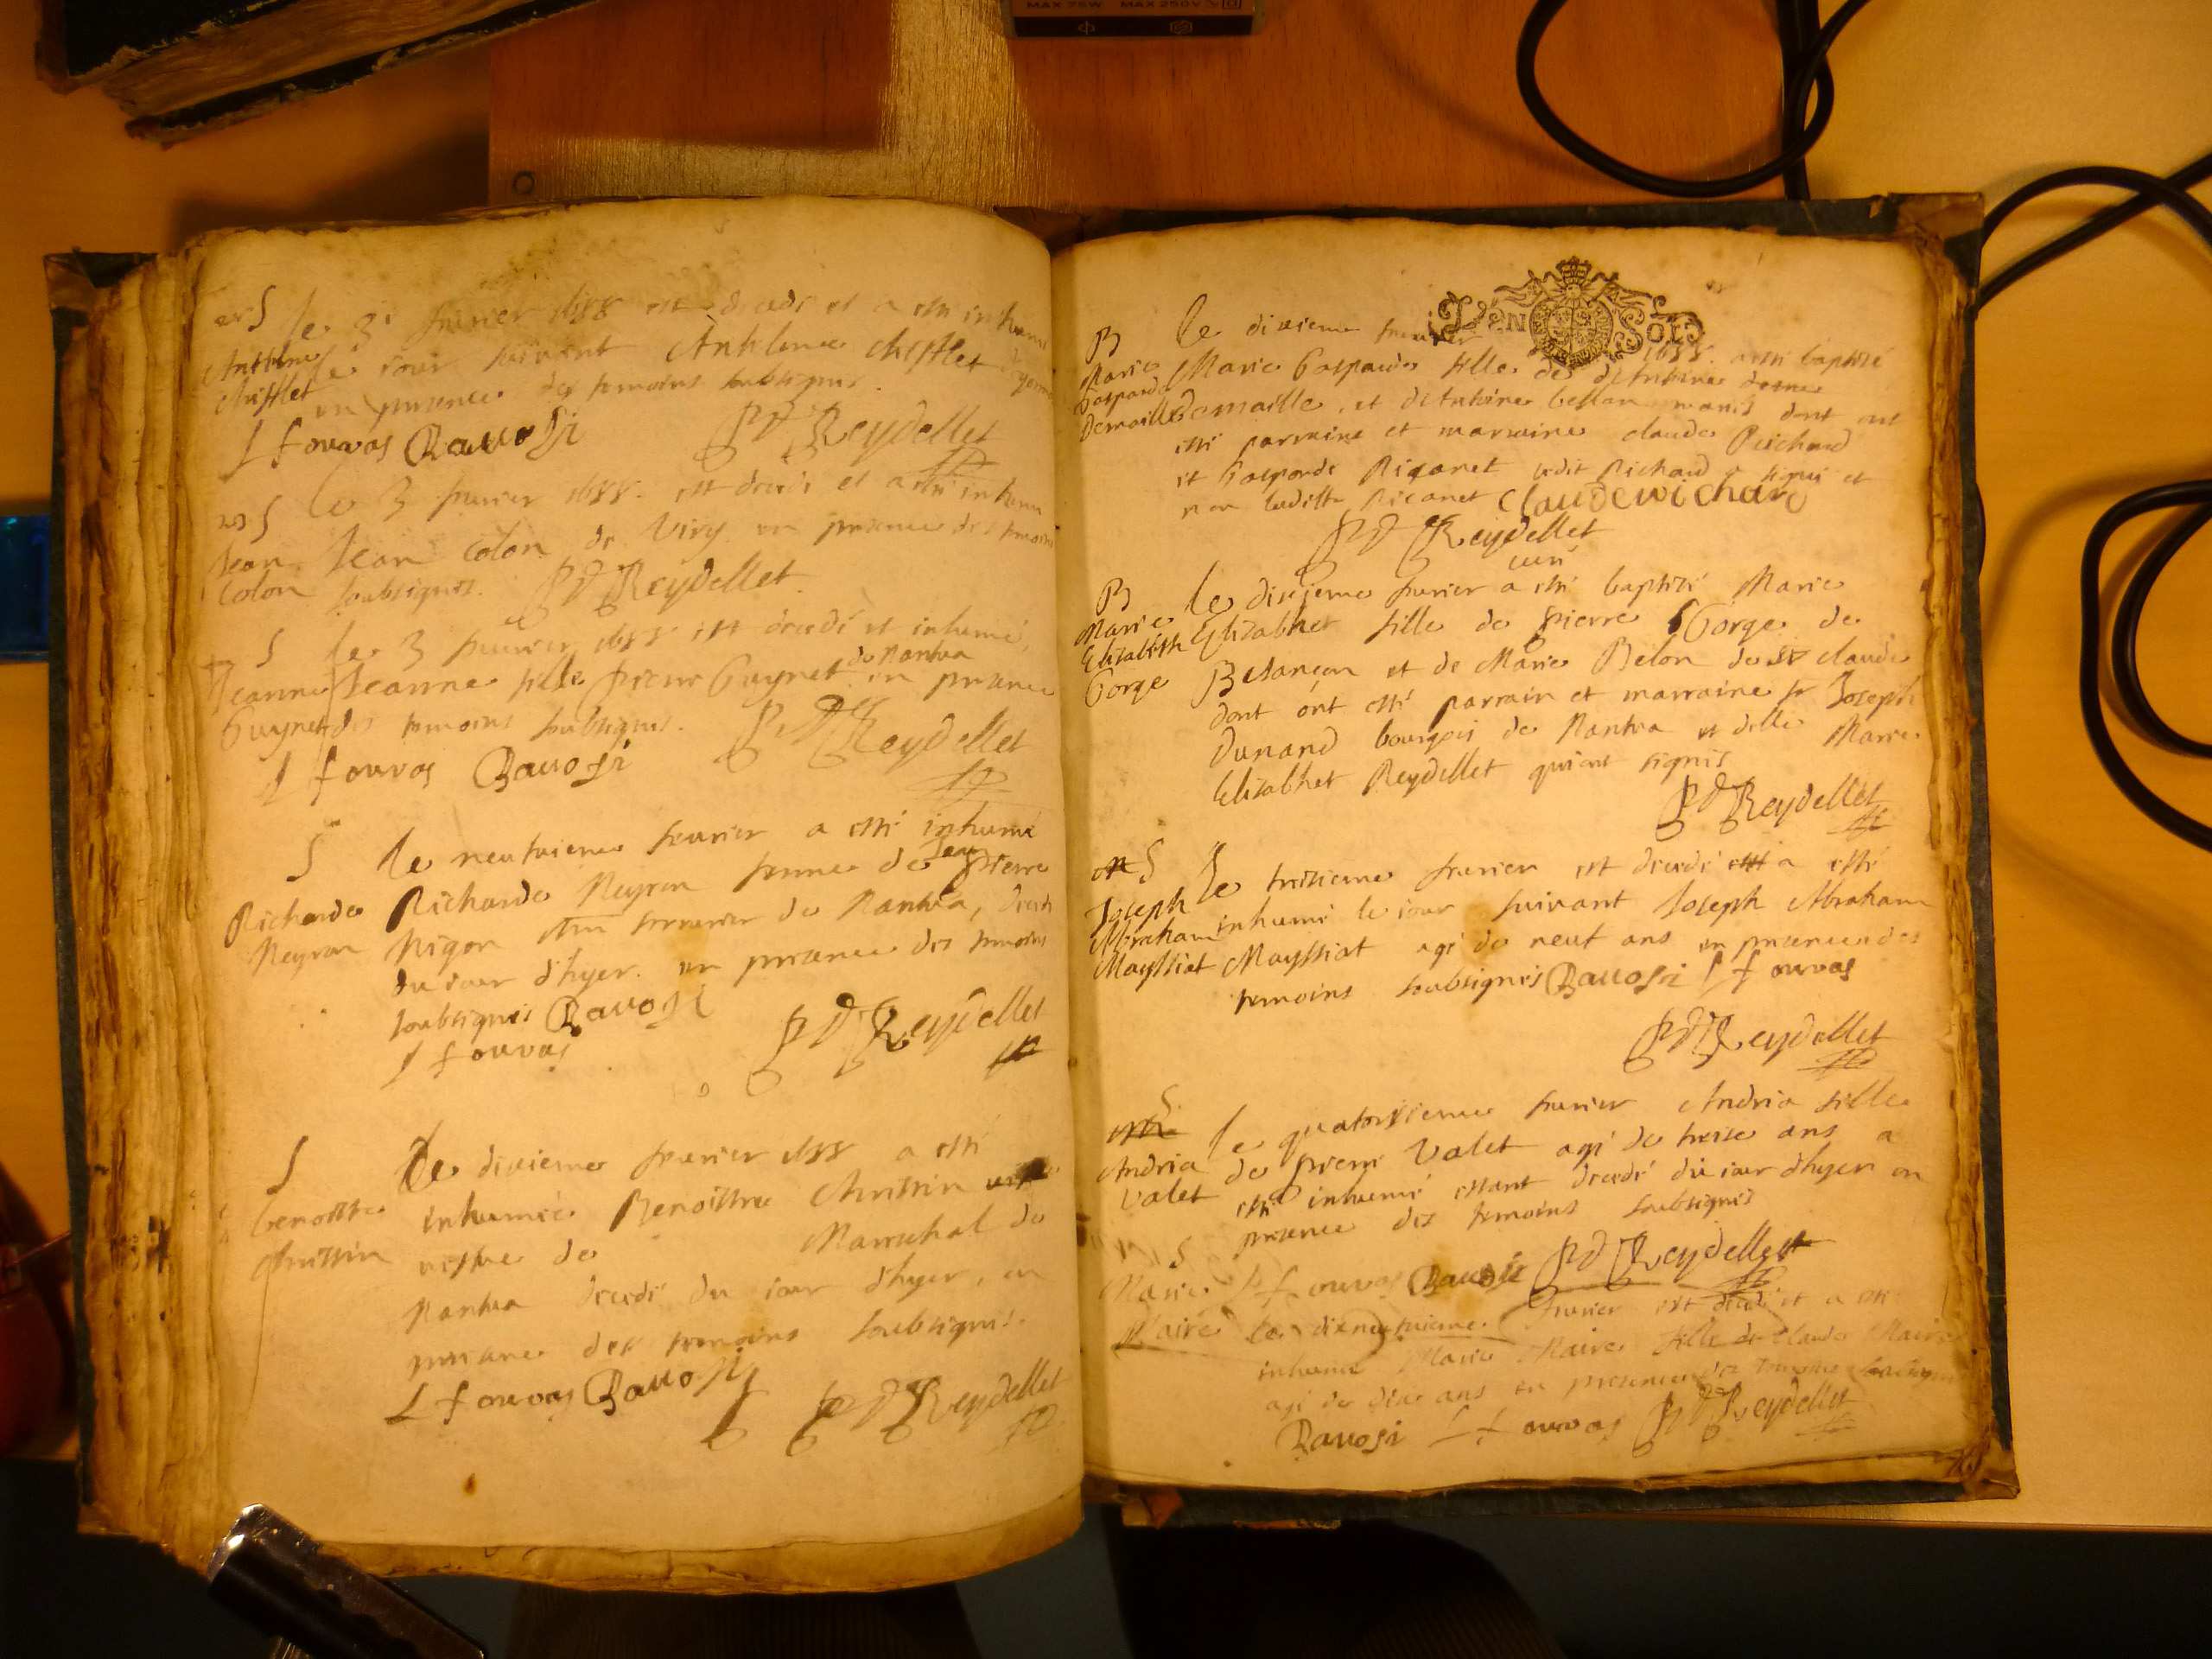 MAX 75W MAX 250V
S
le 3e feurier 1688 est decedé et a esté inhumé
Anthlme
le iour suivant Anthlme chifflet
chifflet
en presence des temoins soubsignes.
f ouvas Rauosi PD Reydellet
S
le 3 feurier 1688. est decedé et a esté inhumé
Jean
Jean Colon de Viry en presence des temoins
Colon
soubsignes. PD Reydellet
S
le 3 feurier 1688 est decedé et inhumé,
Jeanne
Jeanne fille pierre Guynet de Nantua en presence
Guynet
des temoins soubsignes. PD Reydellet
f ouvas Rauosi
S
le neufuieme feurier a esté inhumé
Richarde
Richarde Neyron femme de Jean pierre
Neyron
Nigon serrurier de Nantua,
du iour d'hyer. en presence des temoins
soubsignes Rauosi
f ouvas PD Reydellet
S
Le dixieme feurier 1688 a esté
benoitte
inhumée Benoitte chrittin
chrittin
vefue de Mareschal de
Nantua decedé du iour d'hyer, en
presence des temoins soubsignes.
f ouvas Rauosi PD Reydellet
VEN SOLS
B
le dixieme feurier 1688. a esté baptisé
Marie
Marie Gasparde fille de
Gasparde
Demaille
Demaille, et d'Antoine bellon mariés dont ont
esté parraine et marraine claude Richard
et Gasparde Riganet ledit Richard a signé et
non ladiste Riganet Claude Richard
PD Reydellet
curé
B
le dixjeme feurier a esté baptisé Marie
Marie
Elizabeth
Elizabhet fille de pierre Gorge de
Gorge
Besançon et de Marie Belon de claude
dont ont esté parrain et marraine sr Joseph
Dunand bourgois de Nantua et delle Marie
Elizabhet Reydellet qui ont signés
PD Reydellet
S
Le treisieme feurier est decedé a esté
Joseph
inhumé le iour suivant Joseph Abraham
Abraham
Mayssiat
Mayssiat agé de neuf ans en presence des
temoins soubsignés Rauosi f ouvas
PD Reydellet
S
le quatorsieme feurier Andria fille
Andria
de pierre Valet agé de treize ans a
Valet
esté inhumé estant decedé du iour d'hyer en
presence des temoins soubsignés
S
f ouvas Rauosi PD Reydellet
Marie
Maire
le dixneufuieme feurier est decedé et a esté
inhumé Marie Maire fille de claude Maire
agé de dix ans en presence des temoins soubsignes
Rauosi f ouvas PD Reydellet